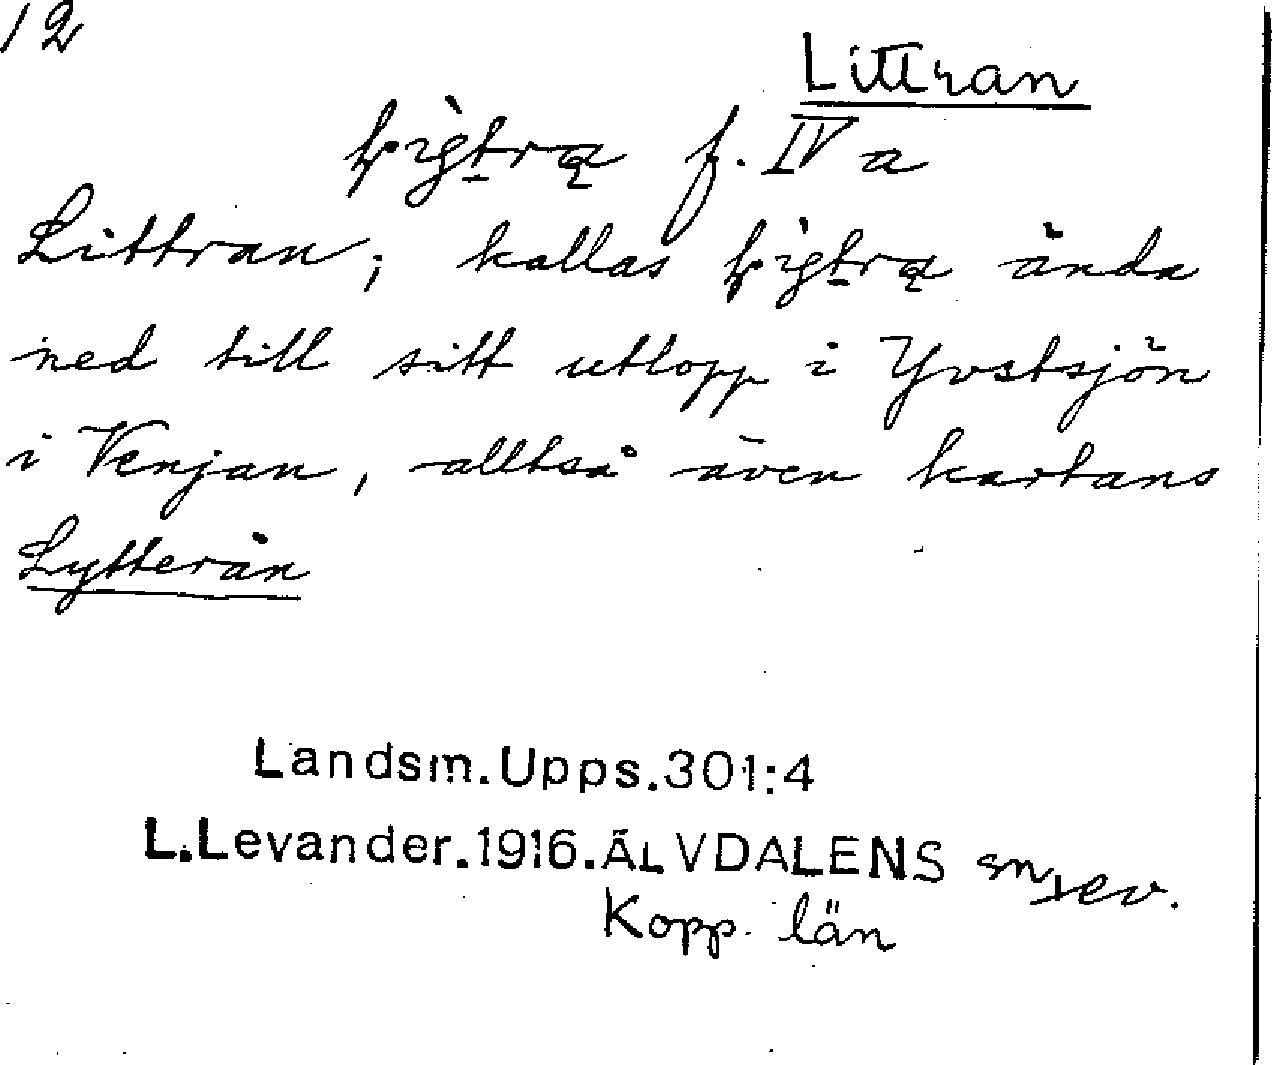 12
Littran
f. IV a
Littran; kallas ända
ned till sitt utlopp i Yvstsjön
i Venjan, alltså även kartans
Lytterån
Landsm. Upps. 301:4
L. Levander. 1916. ÄLVDALENS sn,
Kopp. län